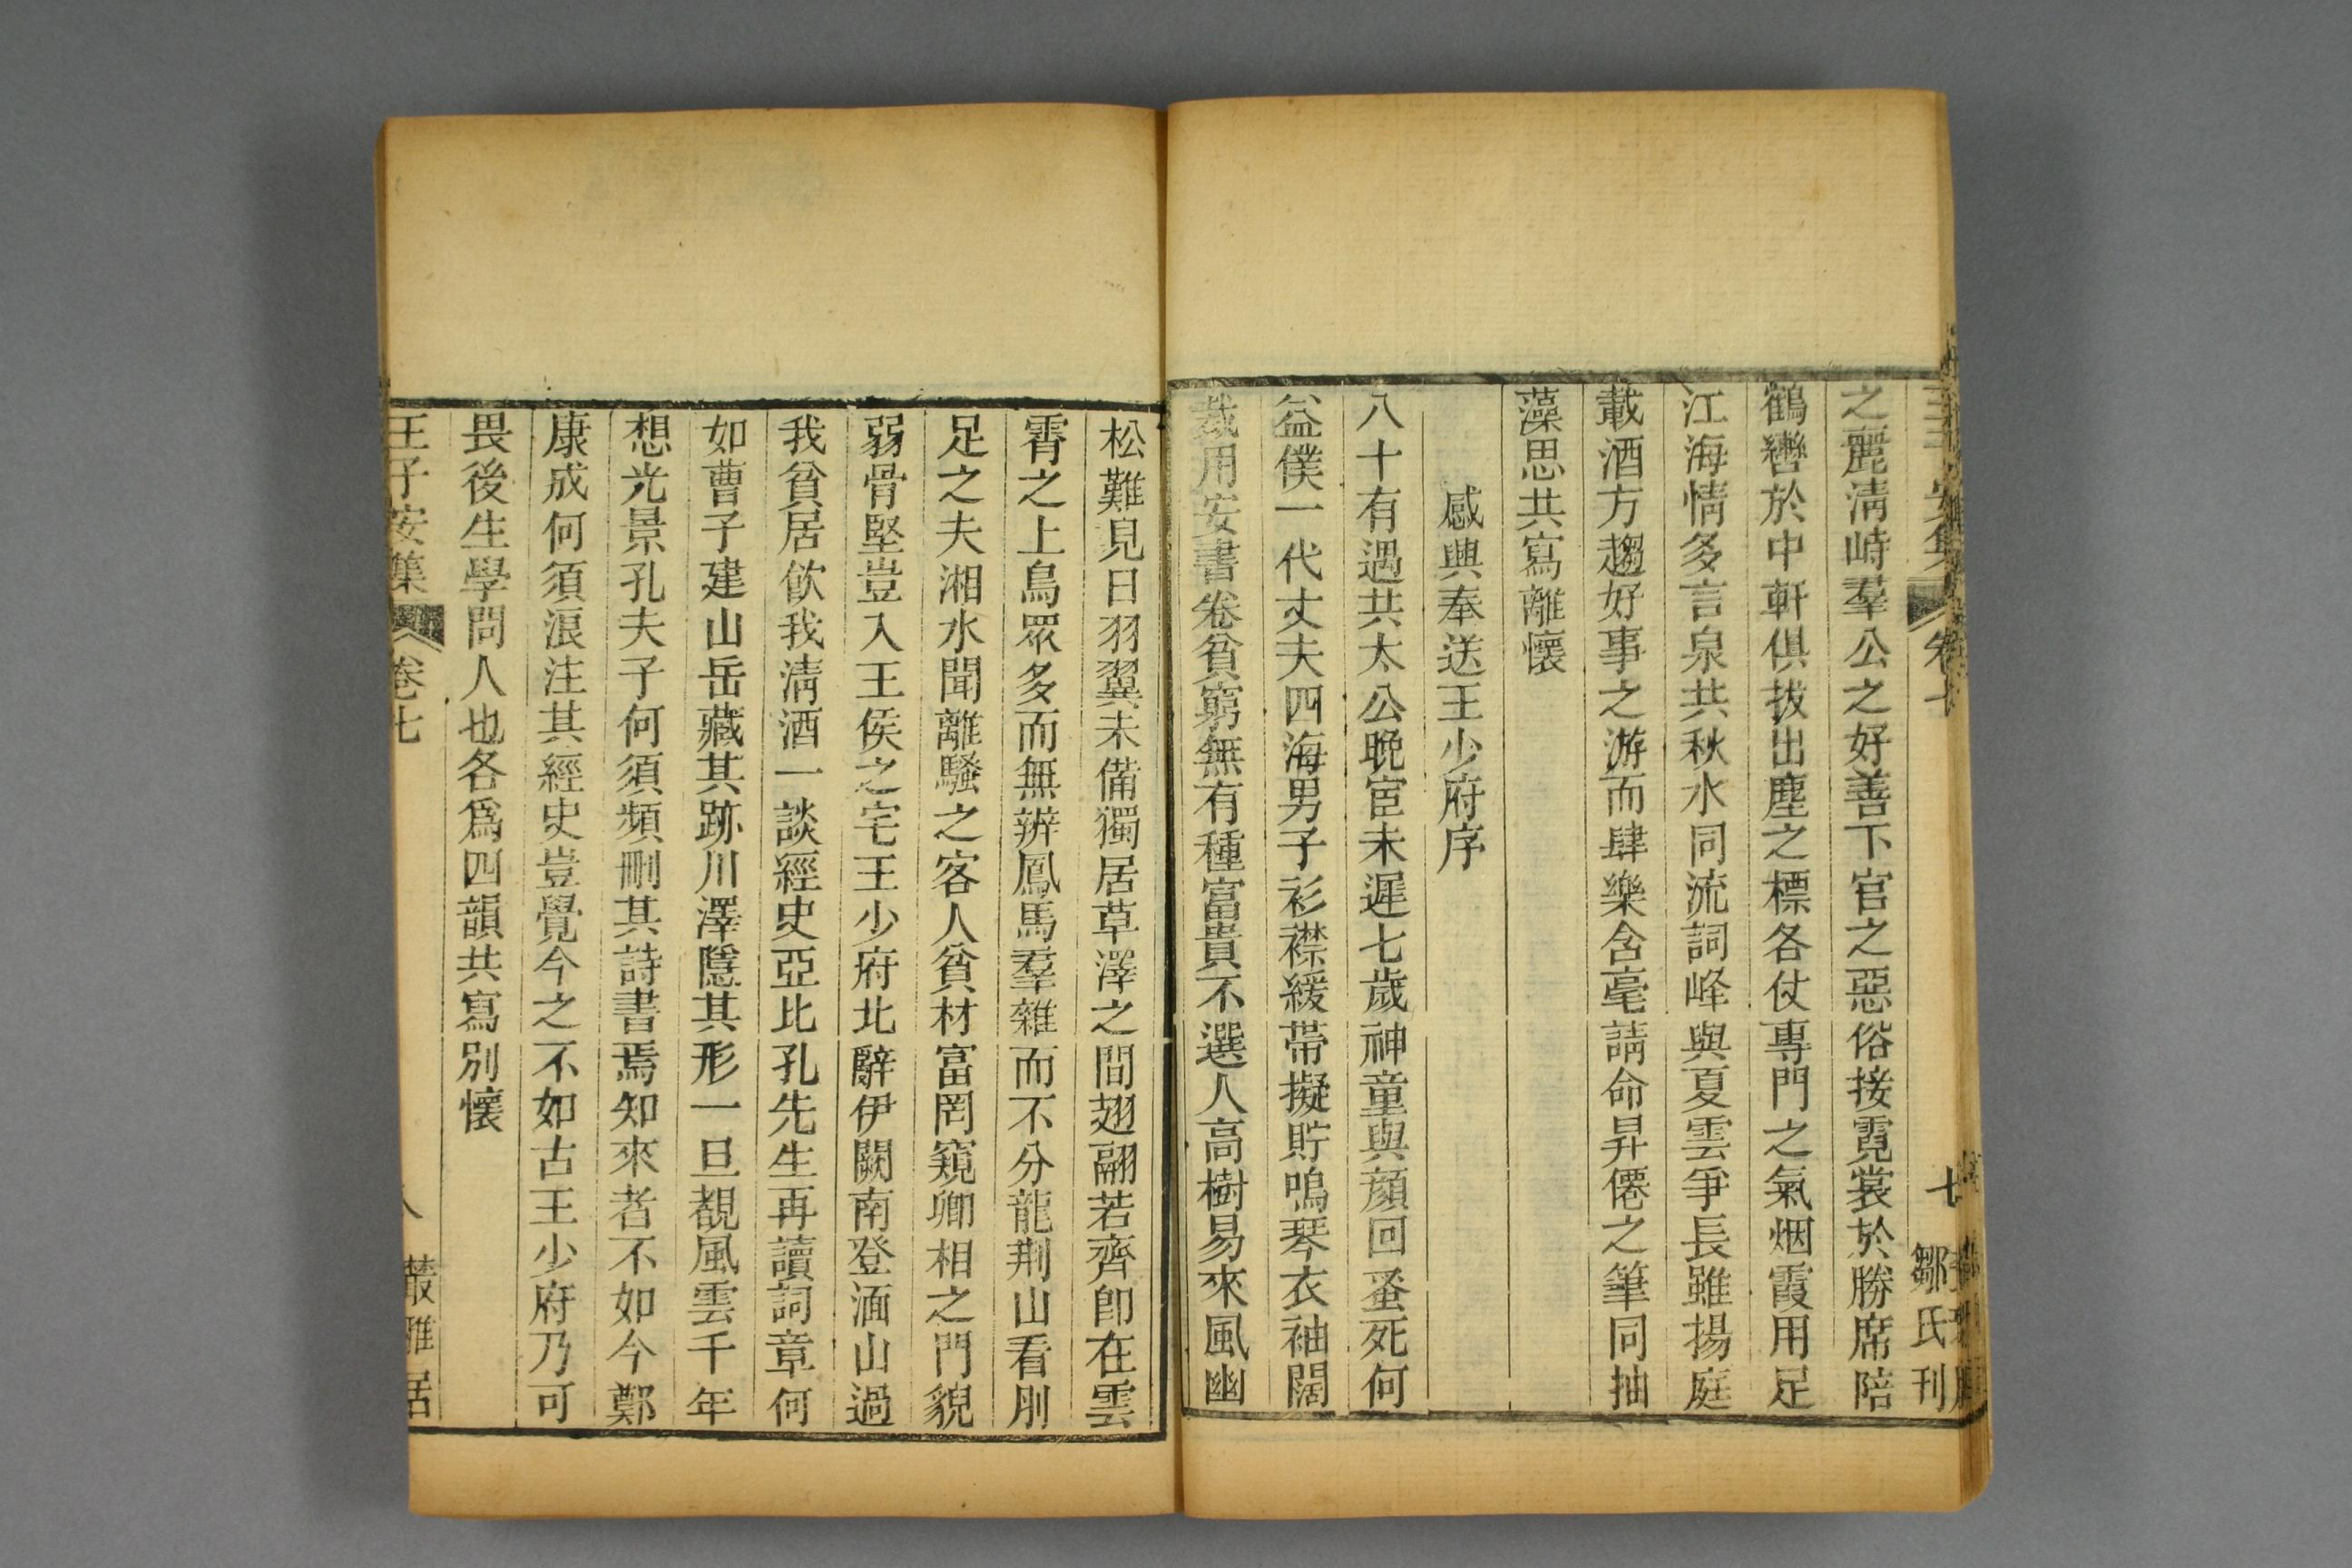 王子安集 卷七 七 鄒氏刊
之麗淸峙羣公之好善下官之惡俗接霓裳於勝席陪
鶴轡於中軒俱拔出塵之標各仗專門之氣烟霞用足
江海情多言泉共秋水同流詞峰與夏雲爭長雖揚庭
載酒方趨好事之游而肆樂含毫請命昇僊之筆同抽
藻思共寫離懷
感興奉送王少府序
八十有遇共太公晩宦未遲七歲神童與顔回蚤死何
益僕一代丈夫四海男子衫襟緩帶擬貯鳴琴衣袖闊
裁用安書卷貧窮無有種富貴不選人高樹易來風幽
松難見日羽翼未備獨居草澤之間翅翮若齊卽在雲
霄之上鳥眾多而無辨鳳馬羣雜而不分龍荆山看刖
足之夫湘水聞離騷之客人貧材富罔窺卿相之門貌
弱骨堅豈入王侯之宅王少府北辭伊闕南登湎山過
我貧居飮我淸酒一談經史亞比孔先生再讀詞章何
如曹子建山岳藏其跡川澤隱其形一旦覩風雲千年
想光景孔夫子何須頻刪其詩書焉知來者不如今鄭
康成何須浪注其經史豈覺今之不如古王少府乃可
畏後生學問人也各爲四韻共寫別懷
王子安集 卷七 八 叢雅居